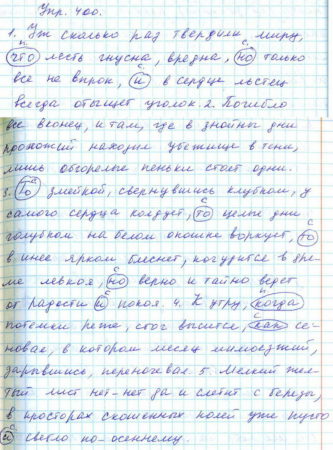 Упр. 400.
1. Уж сколько раз твердили миру,
п с
что лесть гнусна, вредна, но только
с
все не впрок, и в сердце льстец
всегда отыщет уголок. 2. Погибло
все вконец, и там, где в знойны дни
прохожий находил убежище в тени,
лишь обгорелые пеньки стоят одни.
3. То змейкой, свернувшись клубком, у
с
самого сердца колдует, то целые дни
с
голубком на белом окошке воркует, то
в инее ярком блеснет, почудится в дре-
с
ме левкоя, но верно и тайно ведет
с п
от радости и покоя. 4. К утру, когда
с
потемки реже, стог высится, как се-
новал, в котором месяц мимоезжий,
зарывшись, переночевал. 5. Мелкий жел-
тый лист нет-нет да и слетит с березы,
в просторах скошенных полей уже пусто
с
и светло по-осеннему.